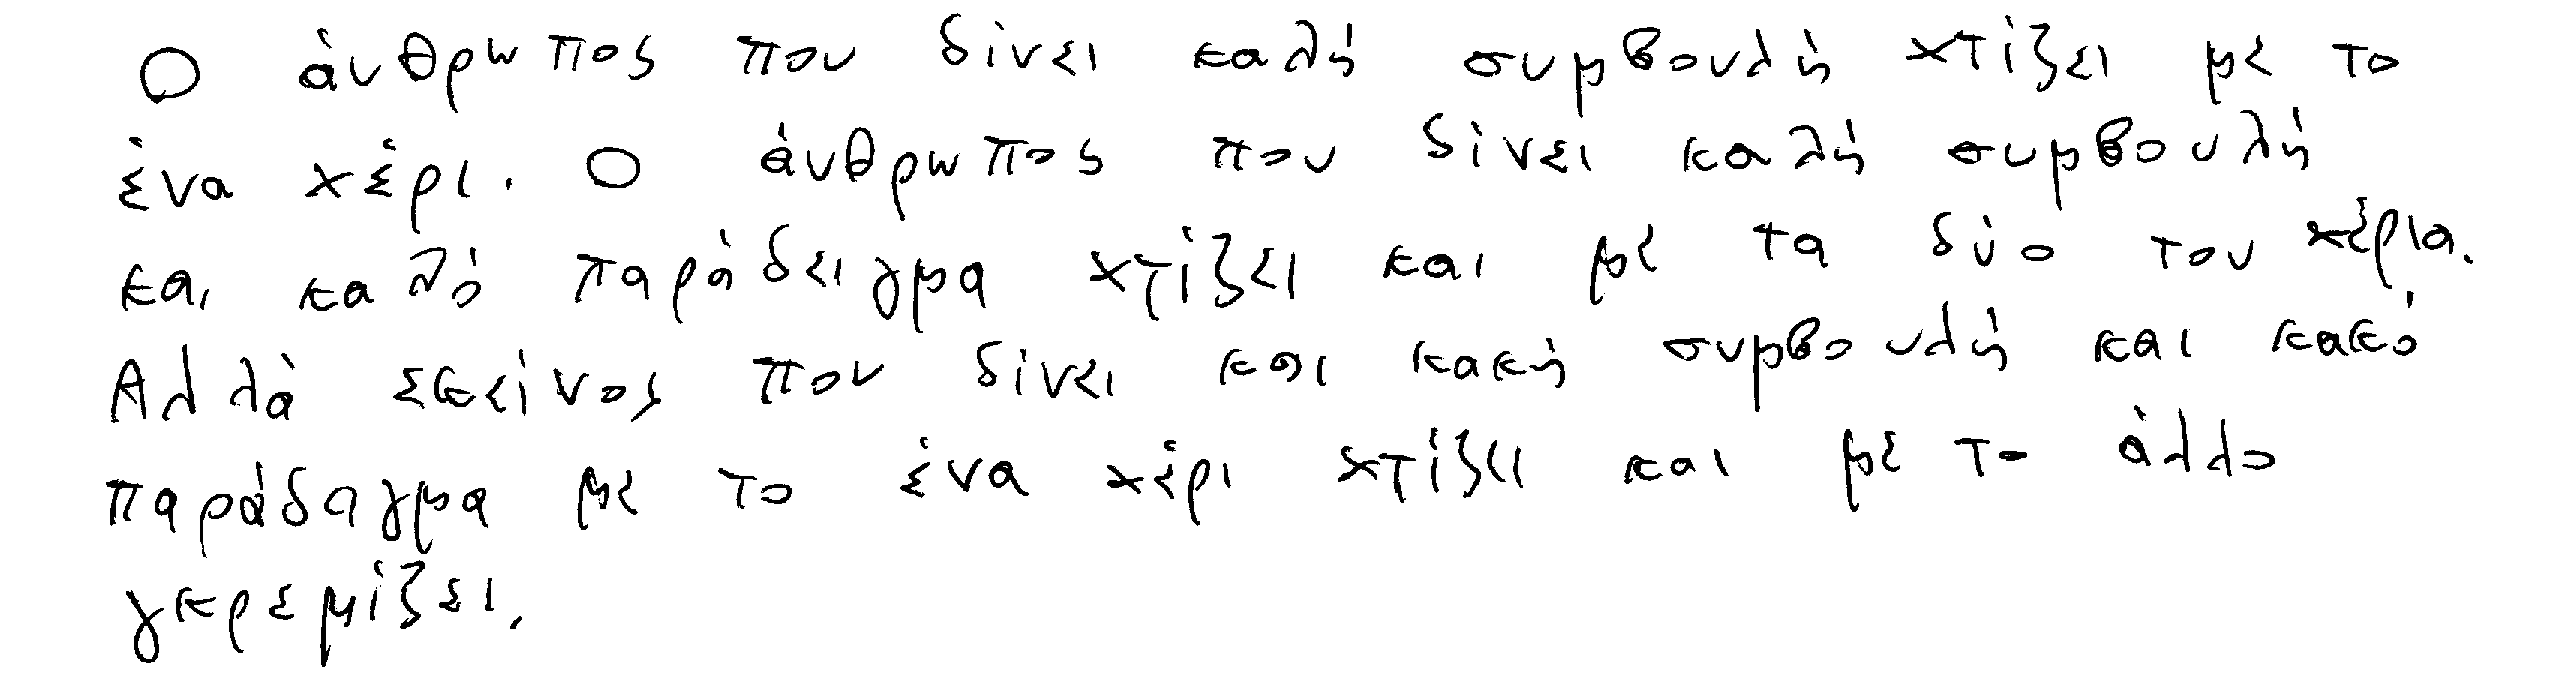 Ο άνθρωπος που δίνει καλή συμβουλή χτίζει με το
ένα χέρι. Ο άνθρωπος που δίνει καλή συμβουλή
και καλό παράδειγμα χτίζει και με τα δύο του χέρια.
Αλλά εκείνος που δίνει και κακή συμβουλή και κακό
παράδειγμα με το ένα χέρι χτίζει και με το άλλο
γκρεμίζει.